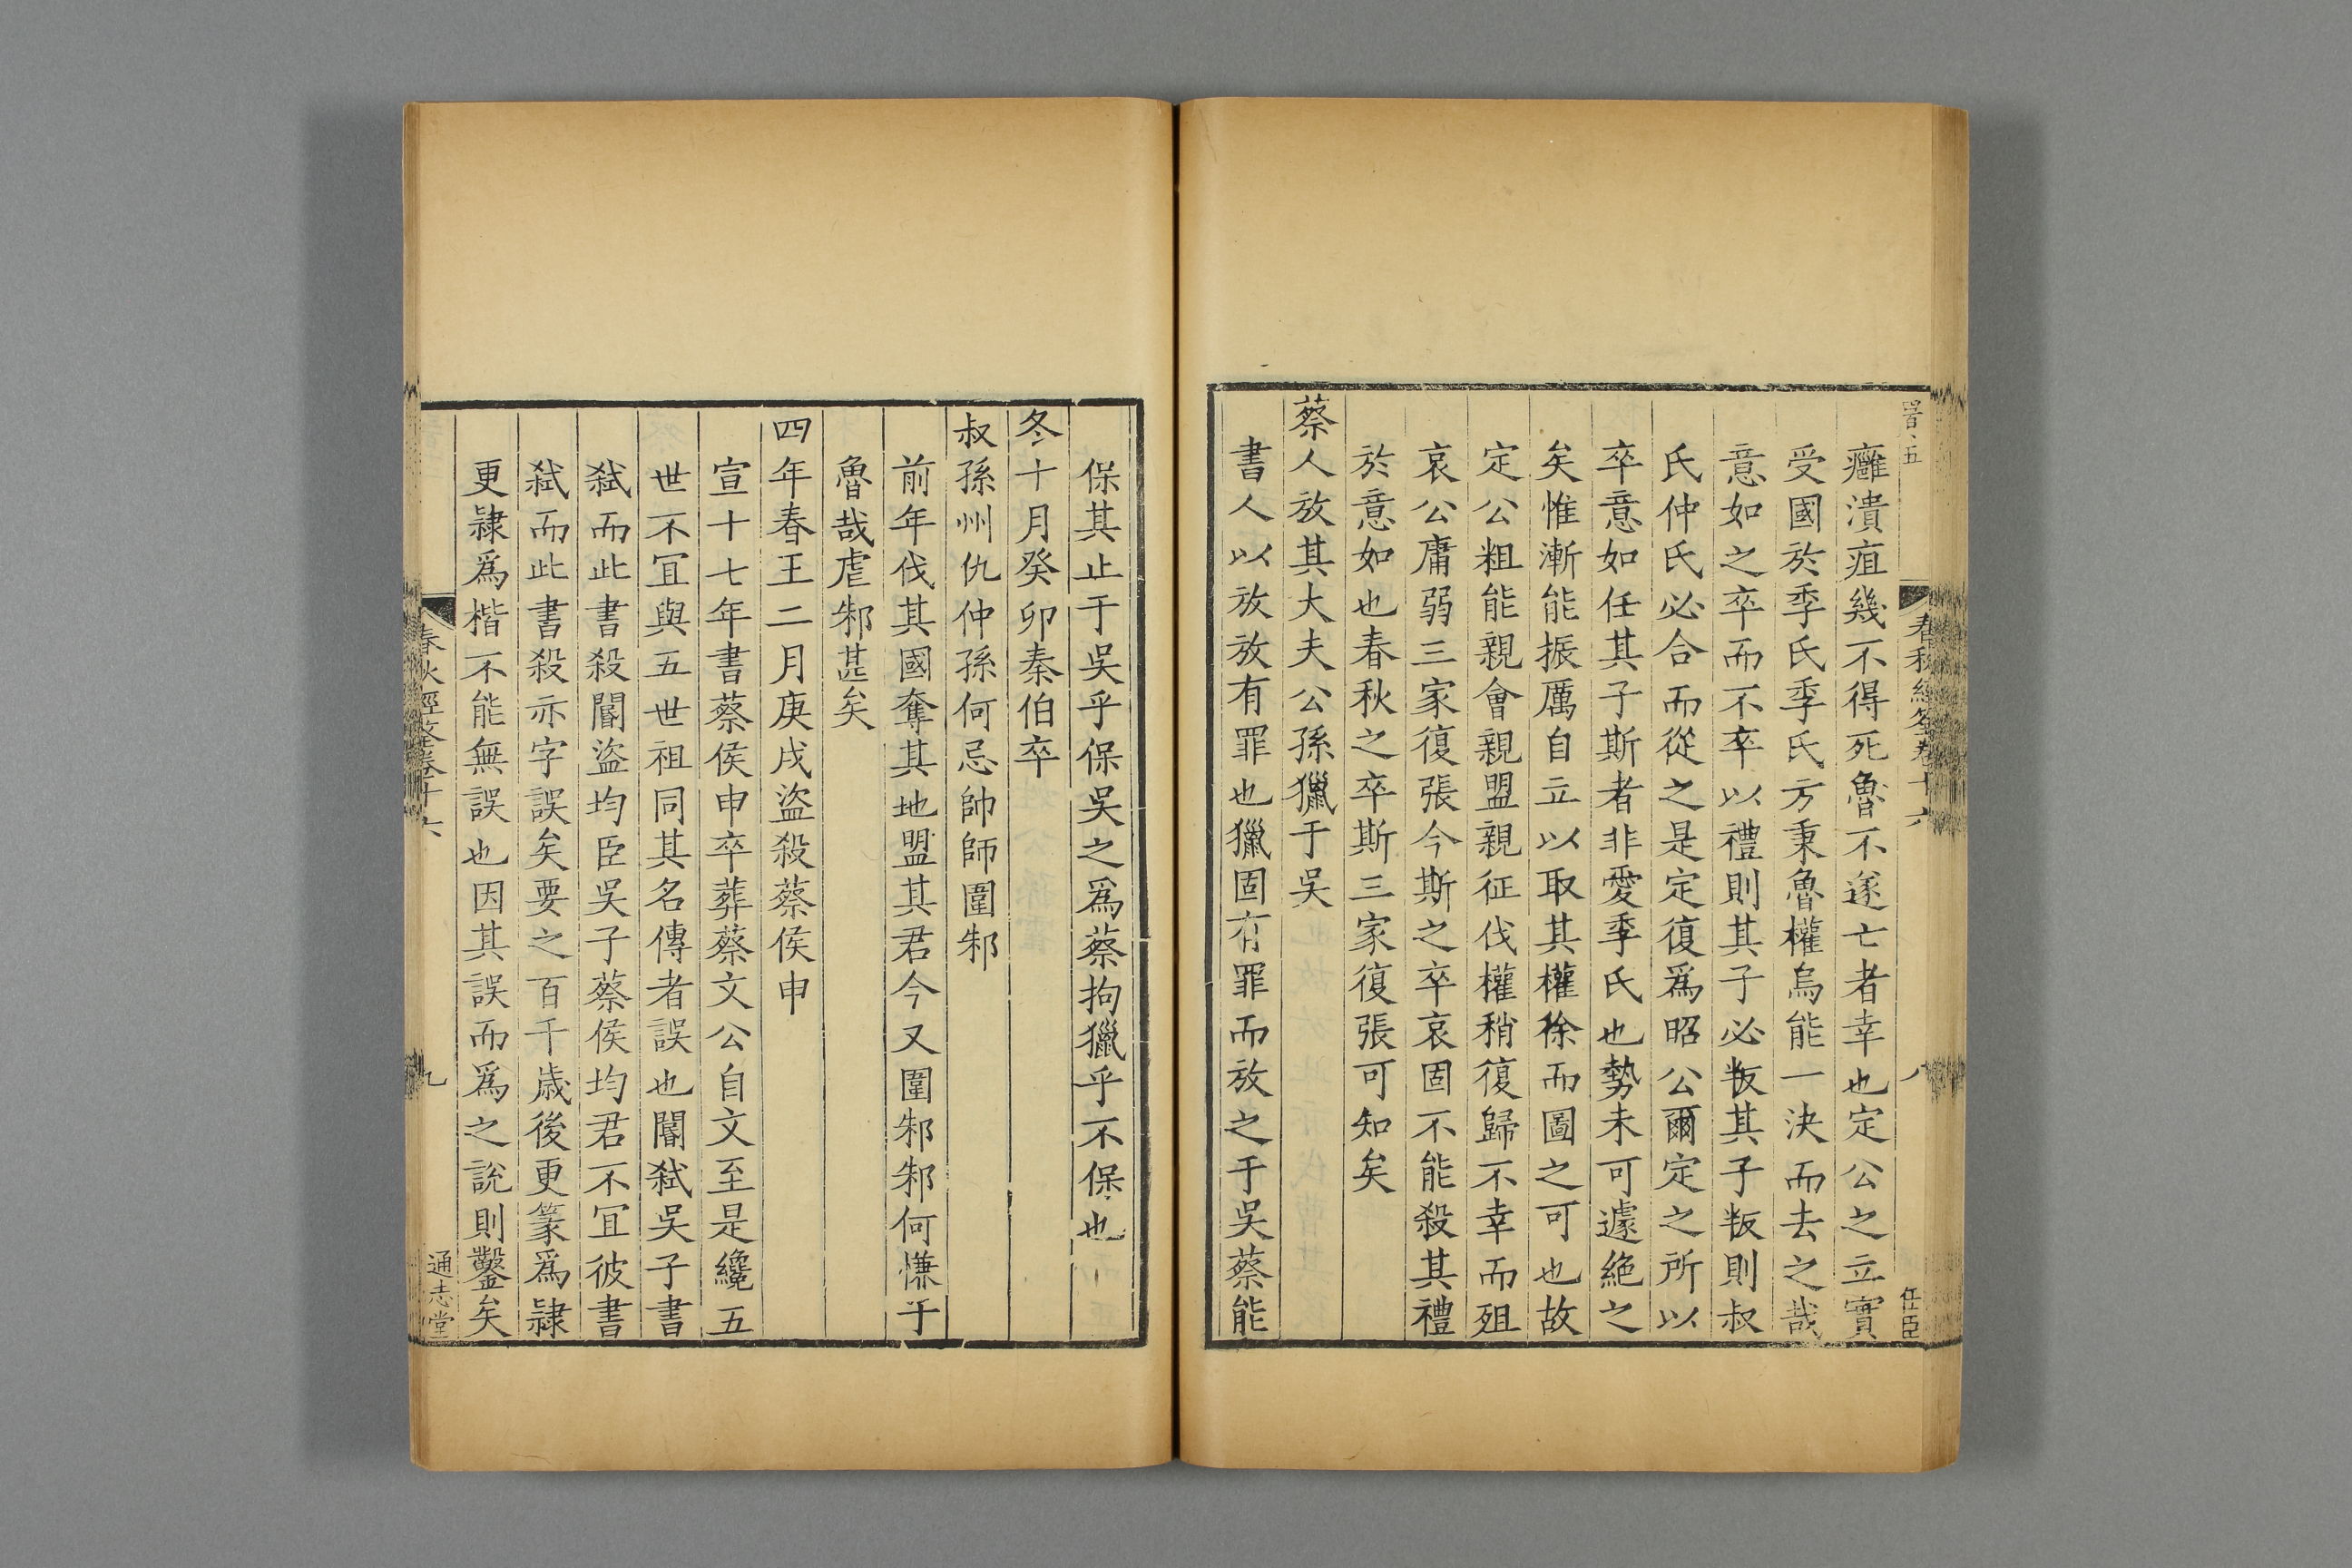 癰潰疽幾不得死魯不遂亡者幸也定公之立實
受國於季氏季氏方秉魯權烏能一決而去之哉
意如之卒而不卒以禮則其子必叛其子叛則叔
氏仲氏必合而從之是定復爲昭公爾定之所以
卒意如任其子斯者非愛季氏也勢未可遽絶之
矣惟漸能振厲自立以取其權徐而圖之可也故
定公粗能親會親盟親征伐權稍復歸不幸而殂
哀公庸弱三家復張今斯之卒哀固不能殺其禮
於意如也春秋之卒斯三家復張可知矣
蔡人放其大夫公孫獵于吳
書人以放放有罪也獵固有罪而放之于吳蔡能
任臣
保其止于吳乎保吳之爲蔡拘獵乎不保也
冬十月癸卯秦伯卒
叔孫州仇仲孫何忌帥師圍邾
前年伐其國奪其地盟其君今又圍邾邾何慊于
魯哉虐邾甚矣
四年春王二月庚戌盜殺蔡侯申
宣十七年書蔡侯申卒葬蔡文公自文至是纔五
世不宜與五世祖同其名傳者誤也閽弒吳子書
弒而此書殺閽盜均臣吳子蔡侯均君不宜彼書
弒而此書殺亦字誤矣要之百千歲後更篆爲隷
更隷爲楷不能無誤也因其誤而爲之說則鑿矣
春秋經筌卷十六
九
通志堂